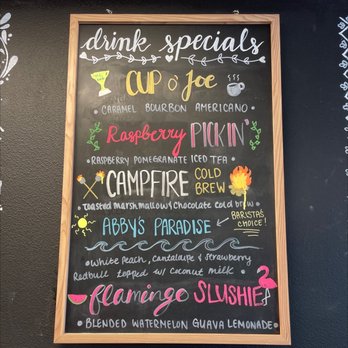 drink specials
CUP o' Joe
CARAMEL BOURBON AMERICANO
Raspberry PICKIN'
RASPBERRY POMEGRANATE ICED TEA
CAMPFIRE COLD BREW
Toasted Marshmallow & Chocolate cold brew
ABBY'S PARADISE
BARISTA'S CHOICE!
White Peach, Cantaloupe & Strawberry
Redbull topped w/ Coconut Milk
flamingo SLUSHIE
BLENDED WATERMELON GUAVA LEMONADE